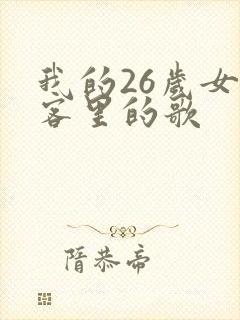 我的26岁女
客里的歌
隋恭帝